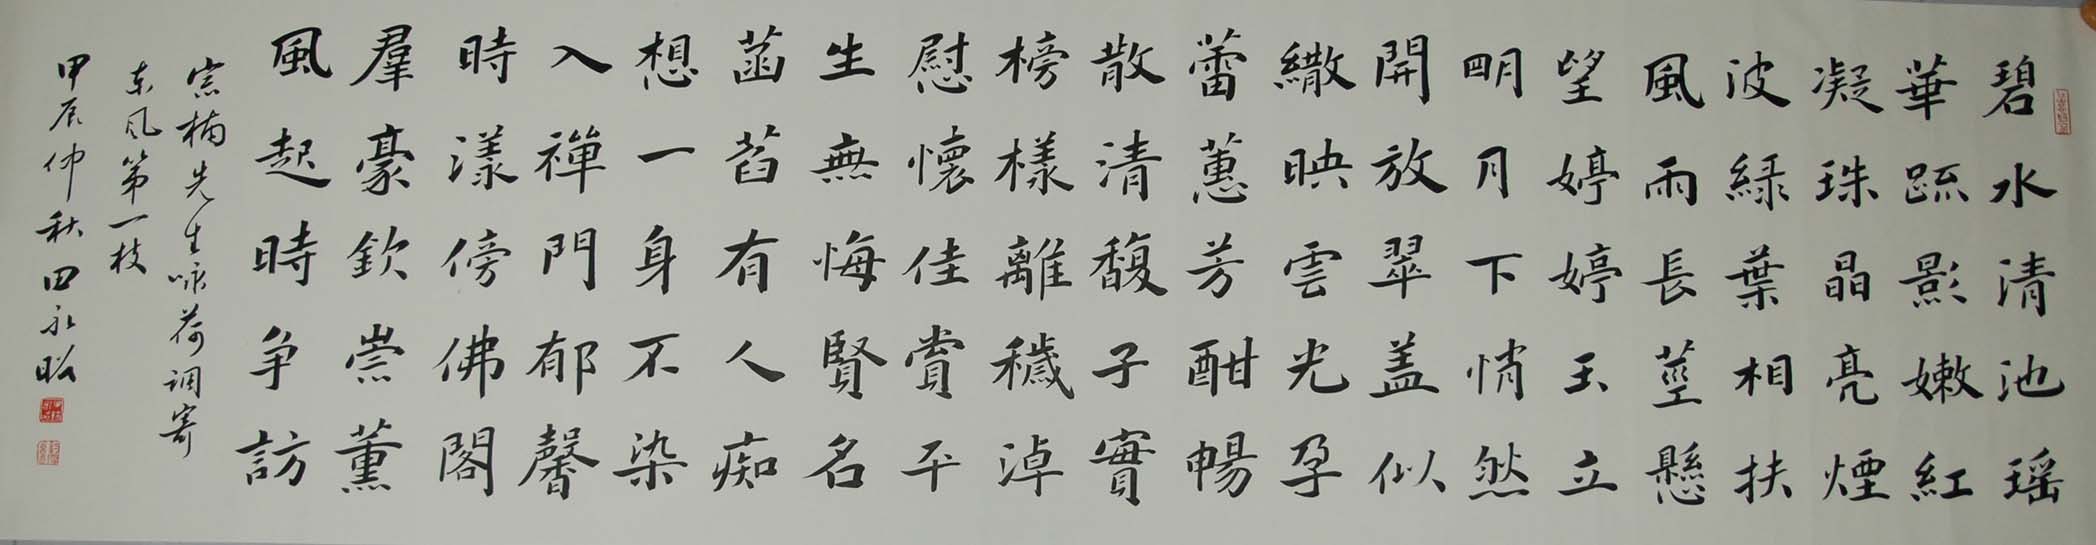 碧水清池瑶
華疏影嫩紅
凝珠晶亮煙
波綠葉相扶
風雨長莖懸
望婷婷玉立
明月下悄然
開放翠盖似
繖映雲光孕
蕾蕙芳酣暢
散清馥子實
榜樣離穢淖
慰懷佳賞平
生無悔賢名
菡萏有人痴
想一身不染
入禪門郁馨
時漾傍佛閣
羣豪欽崇薰
風起時争訪
宗楠先生咏荷调寄
东风第一枝
甲辰仲秋田永昭